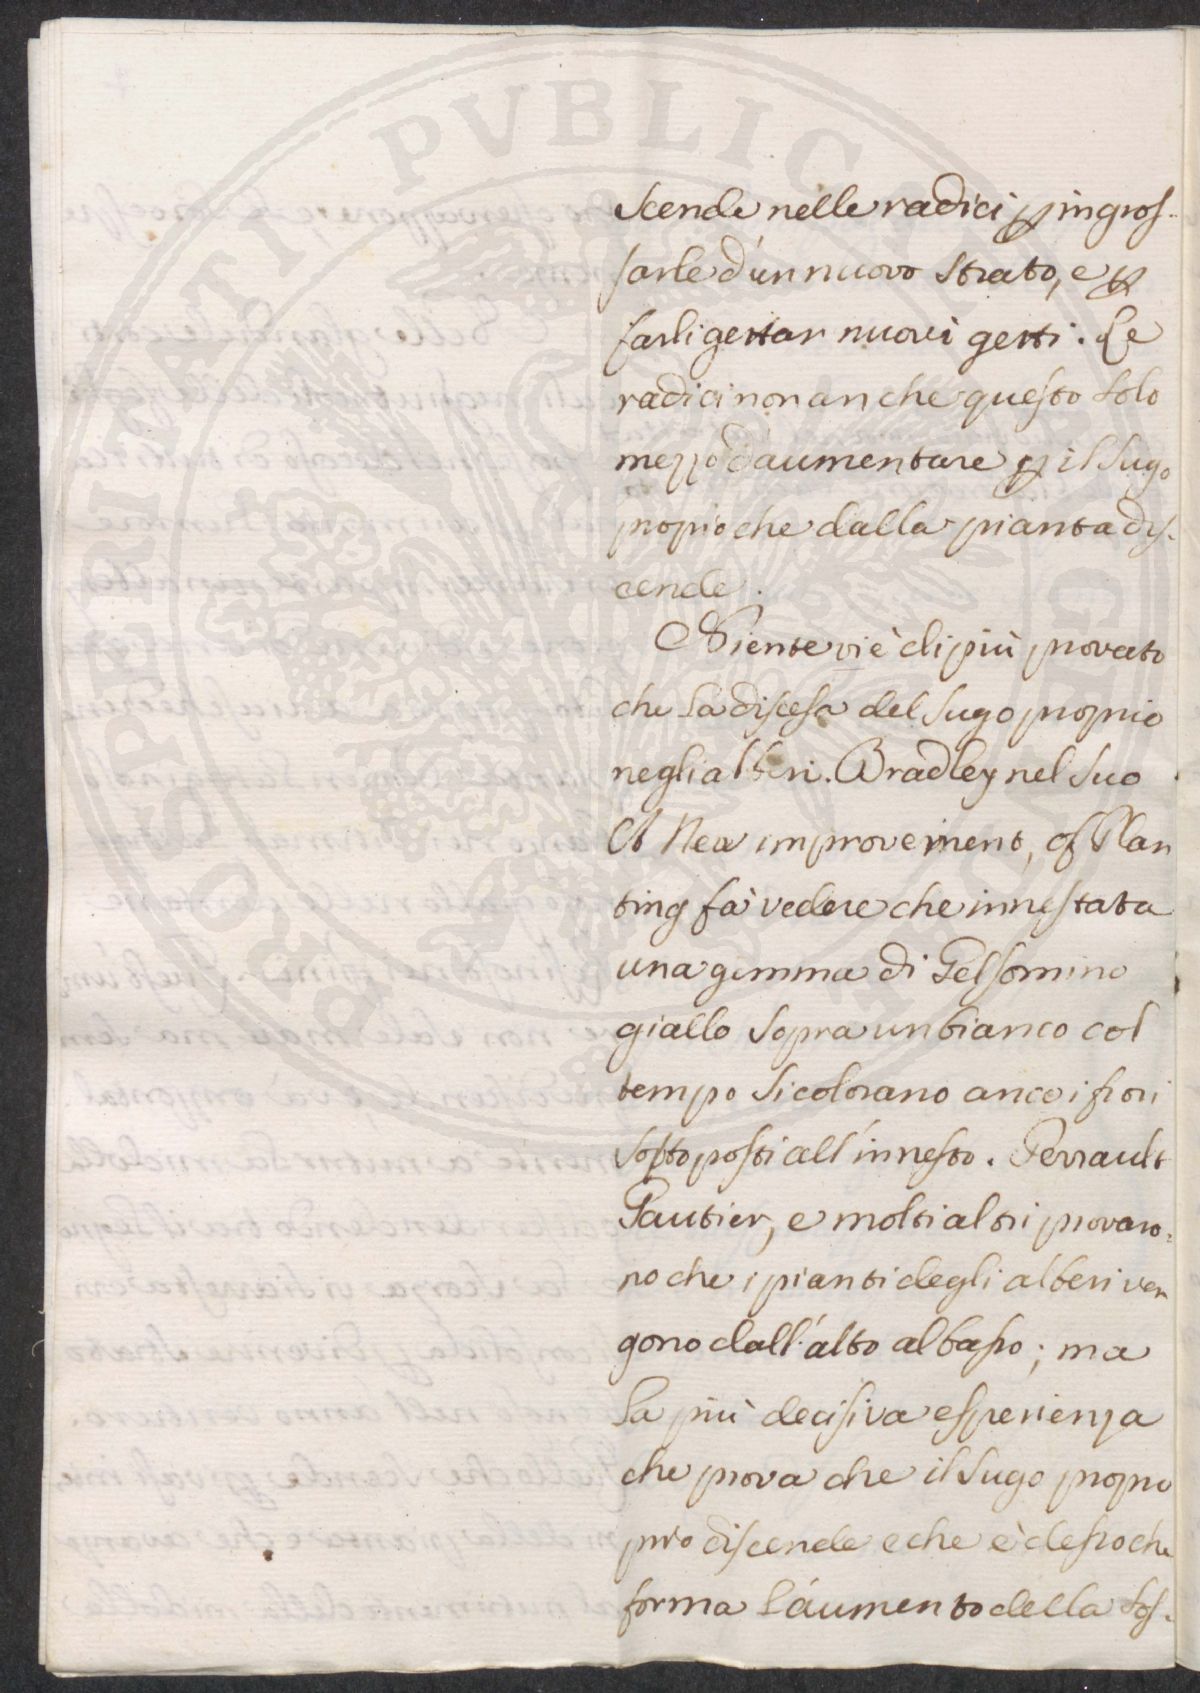 scende nelle radici p ingros-
sarle d'un nuovo strato, e p
farli gettar nuovi getti. Le
radici non an che questo solo
mezzo d'aumentare p il sugo
propio che dalla pianta dis-
cende.
Niente vi è di più provato
che la discesa del sugo proprio
negli alberi. Bradley nel suo
A New improvement, of Plan
ting fà vedere che innestata
una gemma di Gelsomino
giallo sopra un bianco col
tempo si colorano anco i fiori
sottoposti all'innesto. Perrault
Gautier, e molti altri provaro-
no che i pianti degli alberi ven
gono dall'alto al basso; ma
la più decisiva esperienza
che prova che il sugo propio
discende e che è desso che
forma l'aumento della sos-
PROSPERITATI PVBLICAE